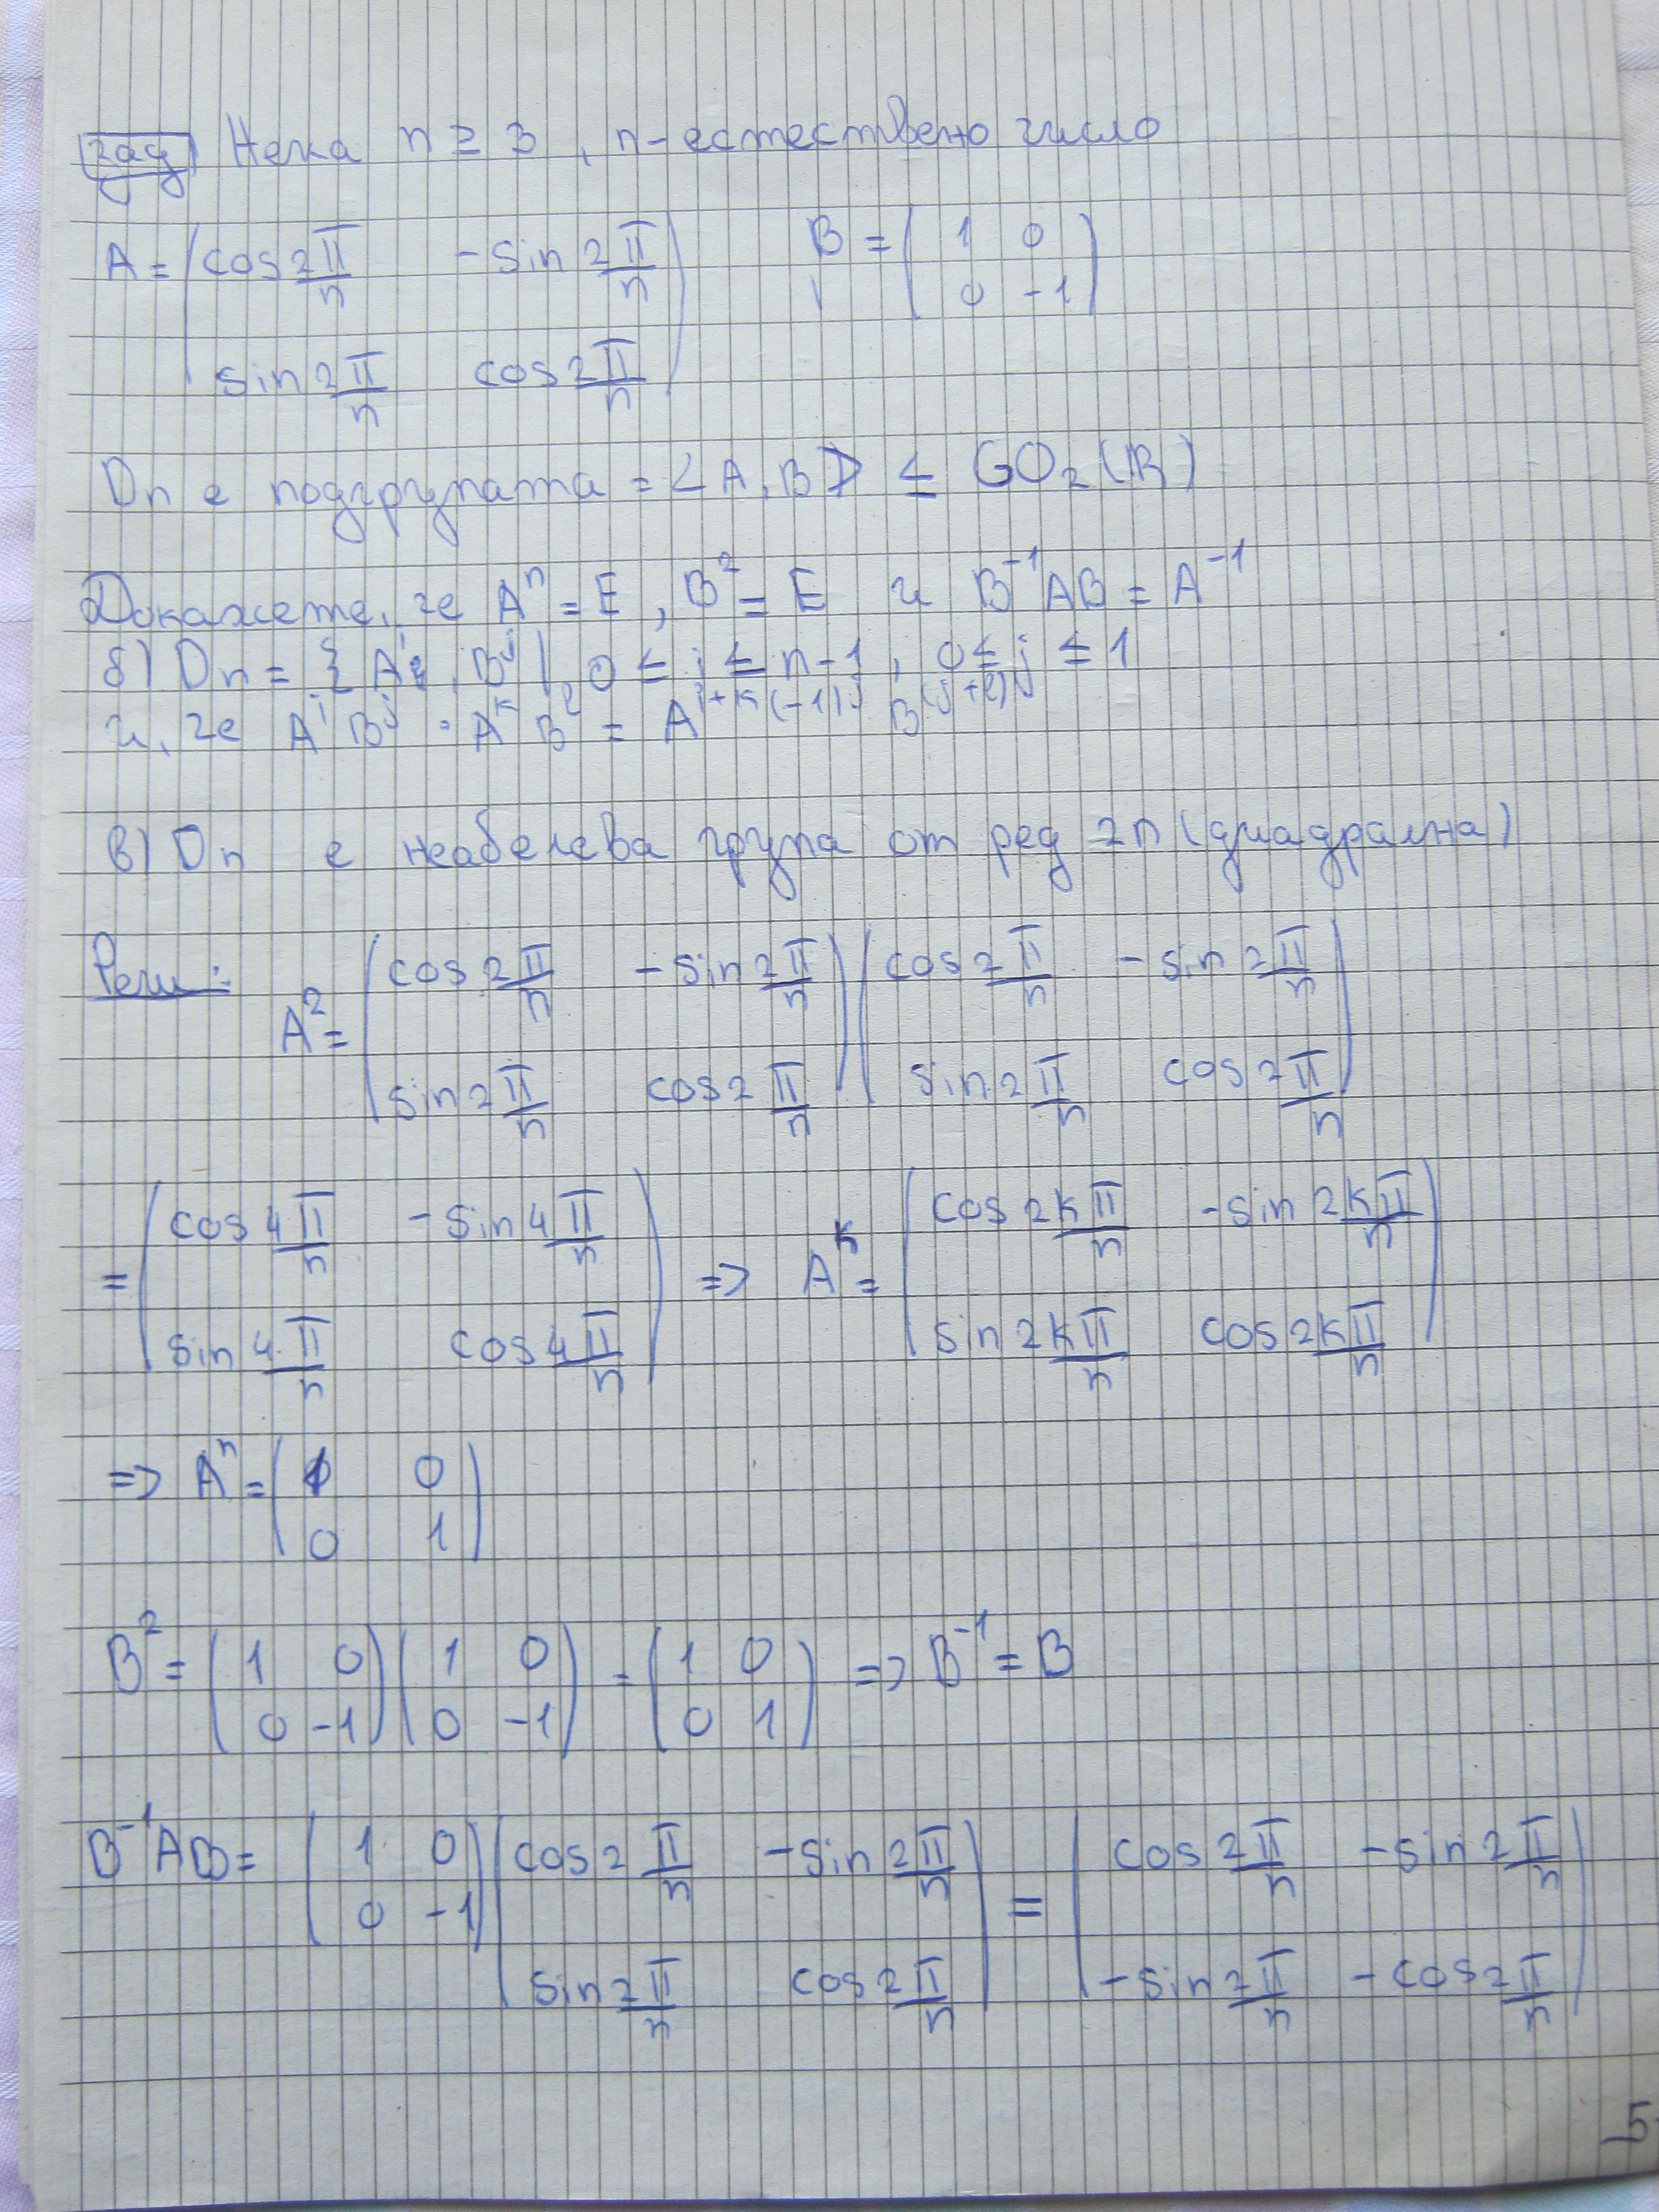 зад Нека n ≥ 3, n-естествено число
A = ( cos 2π/n   -sin 2π/n )   B = ( 1 0 )
( 0 -1 )
( sin 2π/n   cos 2π/n )
Dn е подгрупата = <A, B> ≤ GO₂(R)
Докажете, че Aⁿ = E, B² = E и B⁻¹AB = A⁻¹
б) Dn = {Aⁱ, Bʲ | 0 ≤ i ≤ n-1, 0 ≤ j ≤ 1
и, че AⁱBʲ · AᵏBˡ = A^(i+k(-1)j) B^(j+l)
в) Dn е неабелева група от ред 2n (диадрална)
Реш:
A² = ( cos 2π/n   -sin 2π/n ) ( cos 2π/n   -sin 2π/n )
( sin 2π/n   cos 2π/n ) ( sin 2π/n   cos 2π/n )
= ( cos 4π/n   -sin 4π/n ) => Aᵏ = ( cos 2kπ/n   -sin 2kπ/n )
( sin 4π/n   cos 4π/n ) ( sin 2kπ/n   cos 2kπ/n )
=> Aⁿ = ( 1 0 )
( 0 1 )
B² = ( 1 0 ) ( 1 0 ) = ( 1 0 ) => B⁻¹ = B
( 0 -1 ) ( 0 -1 ) ( 0 1 )
B⁻¹AB = ( 1 0 ) ( cos 2π/n   -sin 2π/n ) = ( cos 2π/n   -sin 2π/n )
( 0 -1 ) ( sin 2π/n   cos 2π/n ) ( -sin 2π/n   -cos 2π/n )